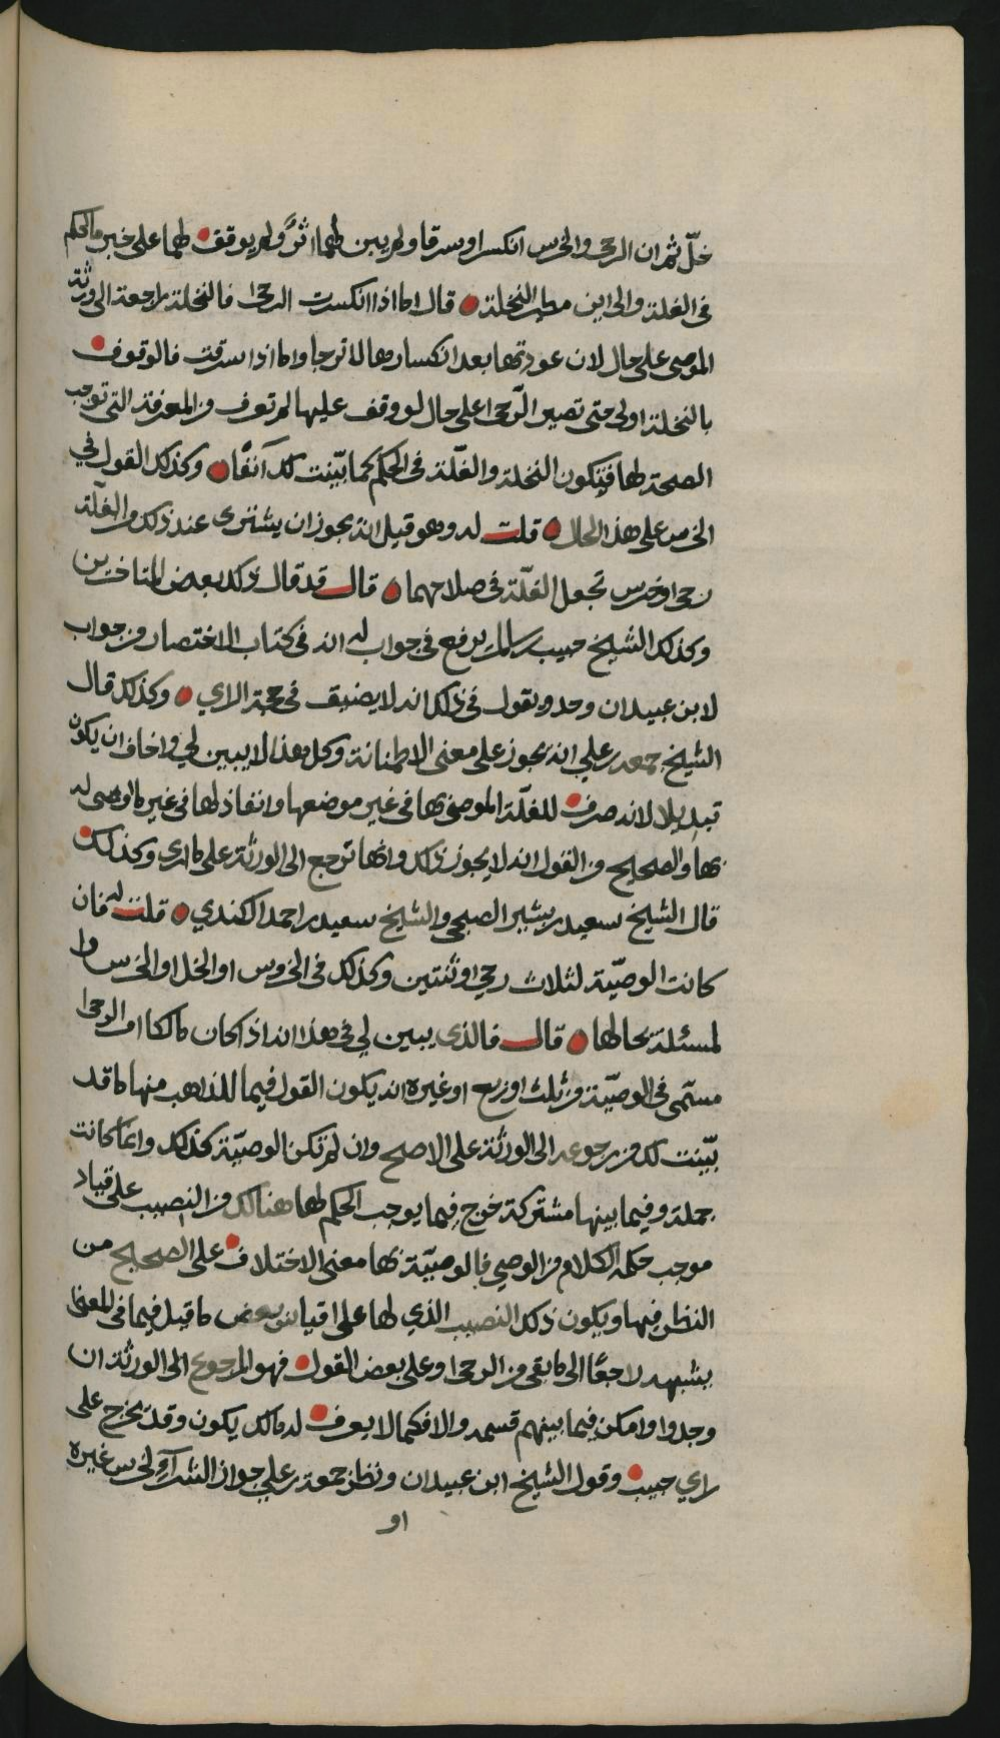 خلّ ثم ان الرحى والخرس انكسرا وسرقا ولم يبين لهما اثرٌ ولم يوقف لهما على خبر ما الحكم
في الغلة والى اين مصير النخلة قال اما اذا انكسرت الرحا فالنخلة راجعة الى ورثة
الموصي على حال لان عودتها بعد انكسارها لا ترجا واما اذا سرقت فالوقوف
بالنخلة اولى حتى تصير الرّحا على حال لو وقف عليها لم تعرف من المعرفة التي توجب
الصحة لها فتكون النخلة والغلّة في الحكم كما بيّنت لك آنفًا وكذلك القول في
الخرس على هذا الحال قلت له وهو قيل انه يجوز ان يشترى عند ذلك من الغلّة
رحى او خرس تجعل الغلّة في صلاحهما قال قد قال بذلك بعض المتاخرين
وكذلك الشيخ حبيب بن سالم يرفع في جواب له انه في كتاب الاختصار من جواب
لابن عبيدان وحده ويقول في ذلك انه لا يضيق في حجة الراي وكذلك قال
الشيخ جمعه بن علي انه يجوز على معنى الاطمنانة وكل هذا لا يبين لي واخاف ان يكون
تبديلا لانه صرف للغلّة الموصى بها في غير موضعها وانفاذ لها في غير ما اوصى له
بها والصحيح من القول انه لا يجوز ذلك وانها ترجع الى الورثة على ما ارى وكذلك
قال الشيخ سعيد بن بشير الصبحي والشيخ سعيد بن احمد الكندي قلت له فان
كانت الوصيّة لثلاث رحي او ثنتين وكذلك في الخروس او الخل او الخرس وا
لمسئلة بحالها قال فالذي يبين لي في هذا انه اذا كان ما لكل من الرحا
مسمّى في الوصيّة من ثلث او ربع او غيره انه يكون القول فيما للذاهب منها ما قد
بيّنت لك من رجوعه الى الورثة على الاصح وان لم تكن الوصيّة كذلك وانما كانت
جملة وفيما بينها مشتركة خرج فيما يوجب الحكم لها هنالك من النصيب على قياد
موجب حكم الكلام من الوصي فالوصيّة بها معنى الاختلاف على الصحيح من
النظر فيها ويكون ذلك النصيب الذي لها على اقياس بعض ما قيل فيما في المعنى
يشبهه راجعًا الى ما بقي من الرحا وعلى بعض القول فهو المرجوع الى الورثة ان
وجدوا وامكن فيما بينهم قسمه والا فكما لا يعرف له مالك يكون وقد يخرج على
راي حبيب وقول الشيخ ابن عبيدان ونظر جمعة بن علي جواز الشرآء لخرس غيره
او